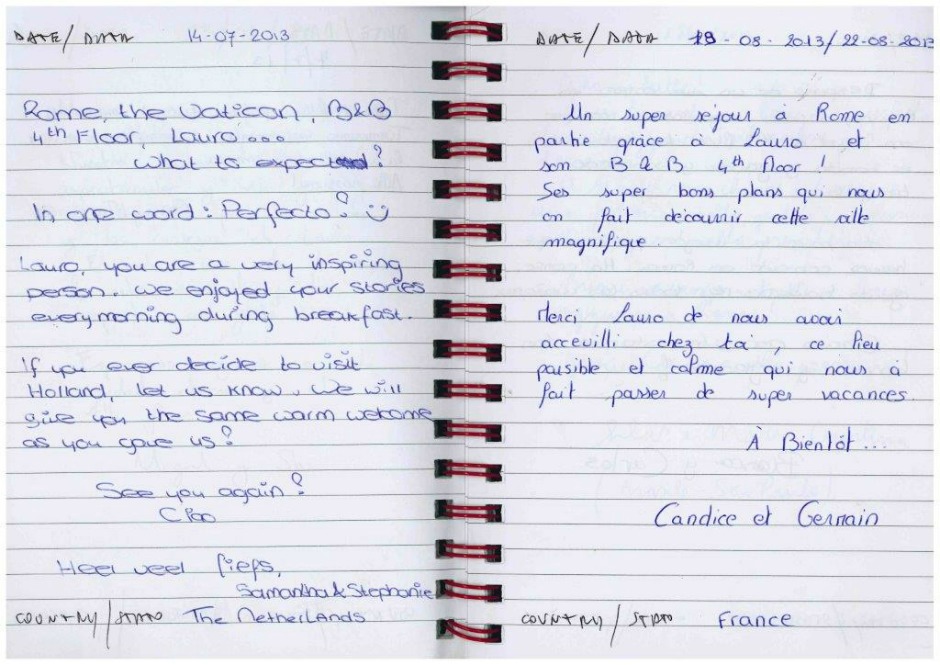 DATE/DATA 14-07-2013
Rome, the Vatican, B&B
4th Floor, Lauro...
What to expect?
In one word: Perfecto! ☺
Lauro, you are a very inspiring
person. We enjoyed your stories
every morning during breakfast.
If you ever decide to visit
Holland, let us know. We will
give you the same warm welcome
as you gave us!
See you again!
Ciao
Heel veel liefs,
Samantha & Stephanie
COUNTRY/STATO The Netherlands
DATE/DATA 19-08-2013/22-08-2013
Un super séjour à Rome en
partie grâce à Lauro et
son B & B 4th floor !
Ses super bons plans qui nous
on fait découvrir cette ville
magnifique.
Merci Lauro de nous avoir
acceuilli chez toi, ce lieu
paisible et calme qui nous a
fait passer de super vacances.
À Bientôt...
Candice et Germain
COUNTRY/STATO France